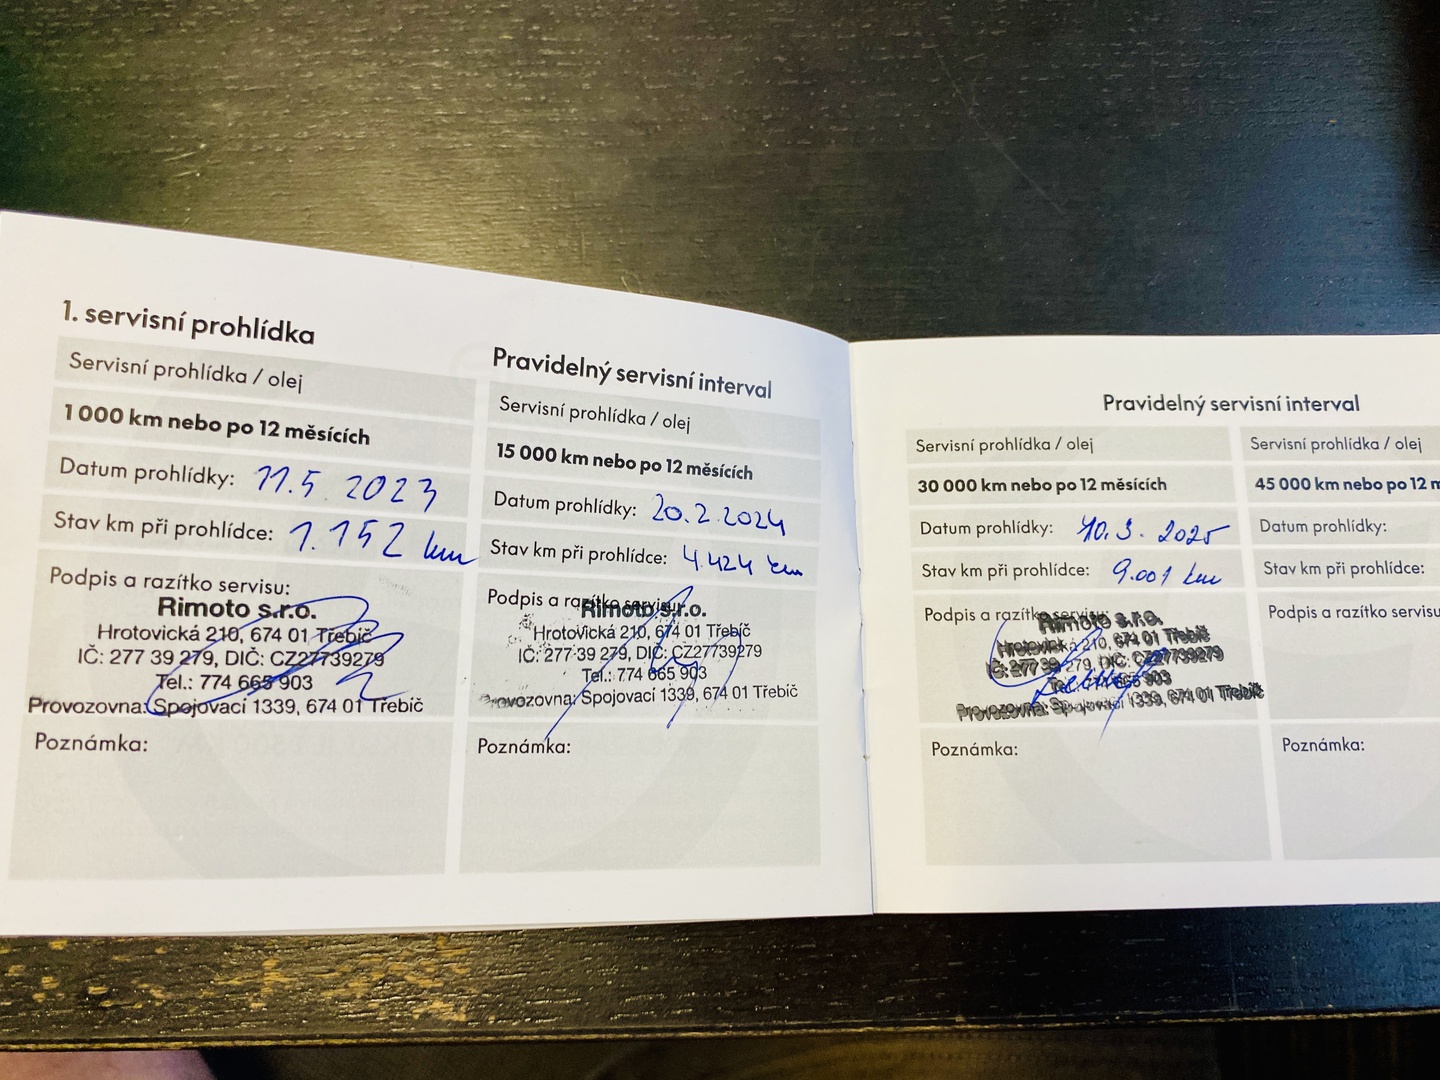 1. servisní prohlídka
Servisní prohlídka / olej
1 000 km nebo po 12 měsících
Datum prohlídky: 11.5. 2023
Stav km při prohlídce: 1.152 km
Podpis a razítko servisu:
Rimoto s.r.o.
Hrotovická 210, 674 01 Třebíč
IČ: 277 39 279, DIČ: CZ27739279
Tel.: 774 665 903
Provozovna: Spojovací 1339, 674 01 Třebíč
Poznámka:
Pravidelný servisní interval
Servisní prohlídka / olej
15 000 km nebo po 12 měsících
Datum prohlídky: 20.2.2024
Stav km při prohlídce: 4.424 km
Podpis a razítko servisu:
Rimoto s.r.o.
Hrotovická 210, 674 01 Třebíč
IČ: 277 39 279, DIČ: CZ27739279
Tel.: 774 665 903
Provozovna: Spojovací 1339, 674 01 Třebíč
Poznámka:
Pravidelný servisní interval
Servisní prohlídka / olej
30 000 km nebo po 12 měsících
Datum prohlídky: 10.3. 2025
Stav km při prohlídce: 9.001 km
Podpis a razítko servisu:
Rimoto s.r.o.
Hrotovická 210, 674 01 Třebíč
IČ: 277 39 279, DIČ: CZ27739279
Tel.: 774 665 903
Provozovna: Spojovací 1339, 674 01 Třebíč
Poznámka:
Servisní prohlídka / olej
45 000 km nebo po 12 m
Datum prohlídky:
Stav km při prohlídce:
Podpis a razítko servisu
Poznámka: